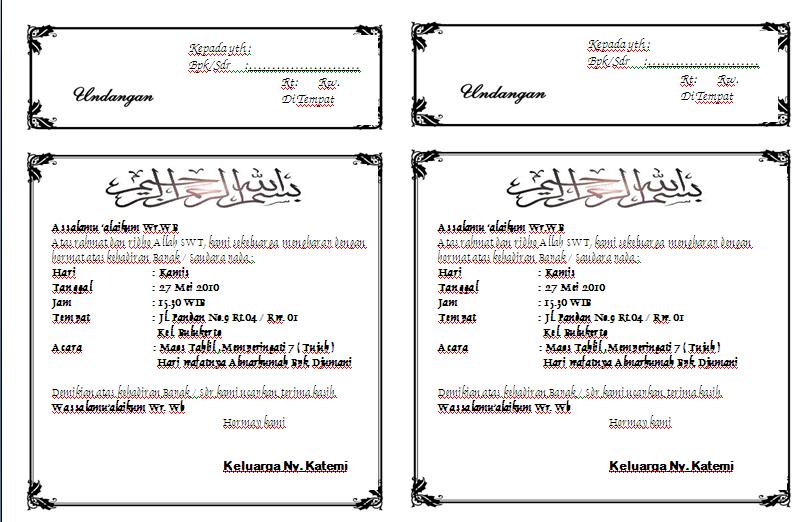 Kepada yth :
Bpk/Sdr :........................
Rt: Rw.
Di Tempat
Undangan
بسم الله الرحمن الرحيم
Assalamu 'alaikum Wr.WB
Atas rahmat dan ridho Allah SWT, kami sekeluarga mengharap dengan
hormat atas kehadiran Bapak / Saudara pada :.
Hari : Kamis
Tanggal : 27 Mei 2010
Jam : 15.30 WIB
Tempat : Jl. Pandan No.9 Rt.04 / Rw. 01
Kel. Bulukerto
Acara : Maos Tahlil , Memperingati 7 ( Tujuh )
Hari wafatnya Almarhumah Bpk Djumani
Demikian atas kehadiran Bapak / Sdr kami ucapkan terima kasih.
Wassalamu'alaikum Wr. Wb
Hormay kami
Keluarga Ny. Katemi
Kepada yth :
Bpk/Sdr :........................
Rt: Rw.
Di Tempat
Undangan
بسم الله الرحمن الرحيم
Assalamu 'alaikum Wr.WB
Atas rahmat dan ridho Allah SWT, kami sekeluarga mengharap dengan
hormat atas kehadiran Bapak / Saudara pada :.
Hari : Kamis
Tanggal : 27 Mei 2010
Jam : 15.30 WIB
Tempat : Jl. Pandan No.9 Rt.04 / Rw. 01
Kel. Bulukerto
Acara : Maos Tahlil , Memperingati 7 ( Tujuh )
Hari wafatnya Almarhumah Bpk Djumani
Demikian atas kehadiran Bapak / Sdr kami ucapkan terima kasih.
Wassalamu'alaikum Wr. Wb
Hormay kami
Keluarga Ny. Katemi